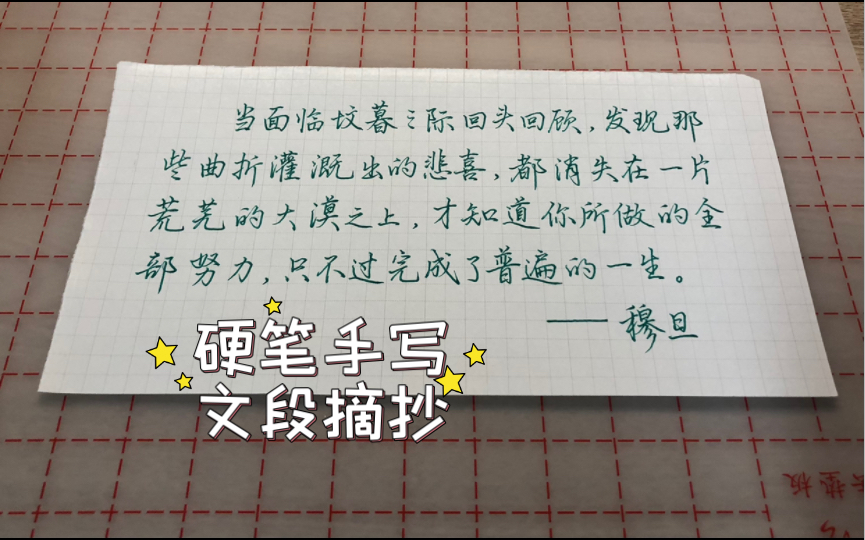 当面临坟暮之际回头回顾，发现那
些曲折灌溉出的悲喜，都消失在一片
荒芜的大漠之上，才知道你所做的全
部努力，只不过完成了普遍的一生。
——穆旦
硬笔手写
文段摘抄
垫板